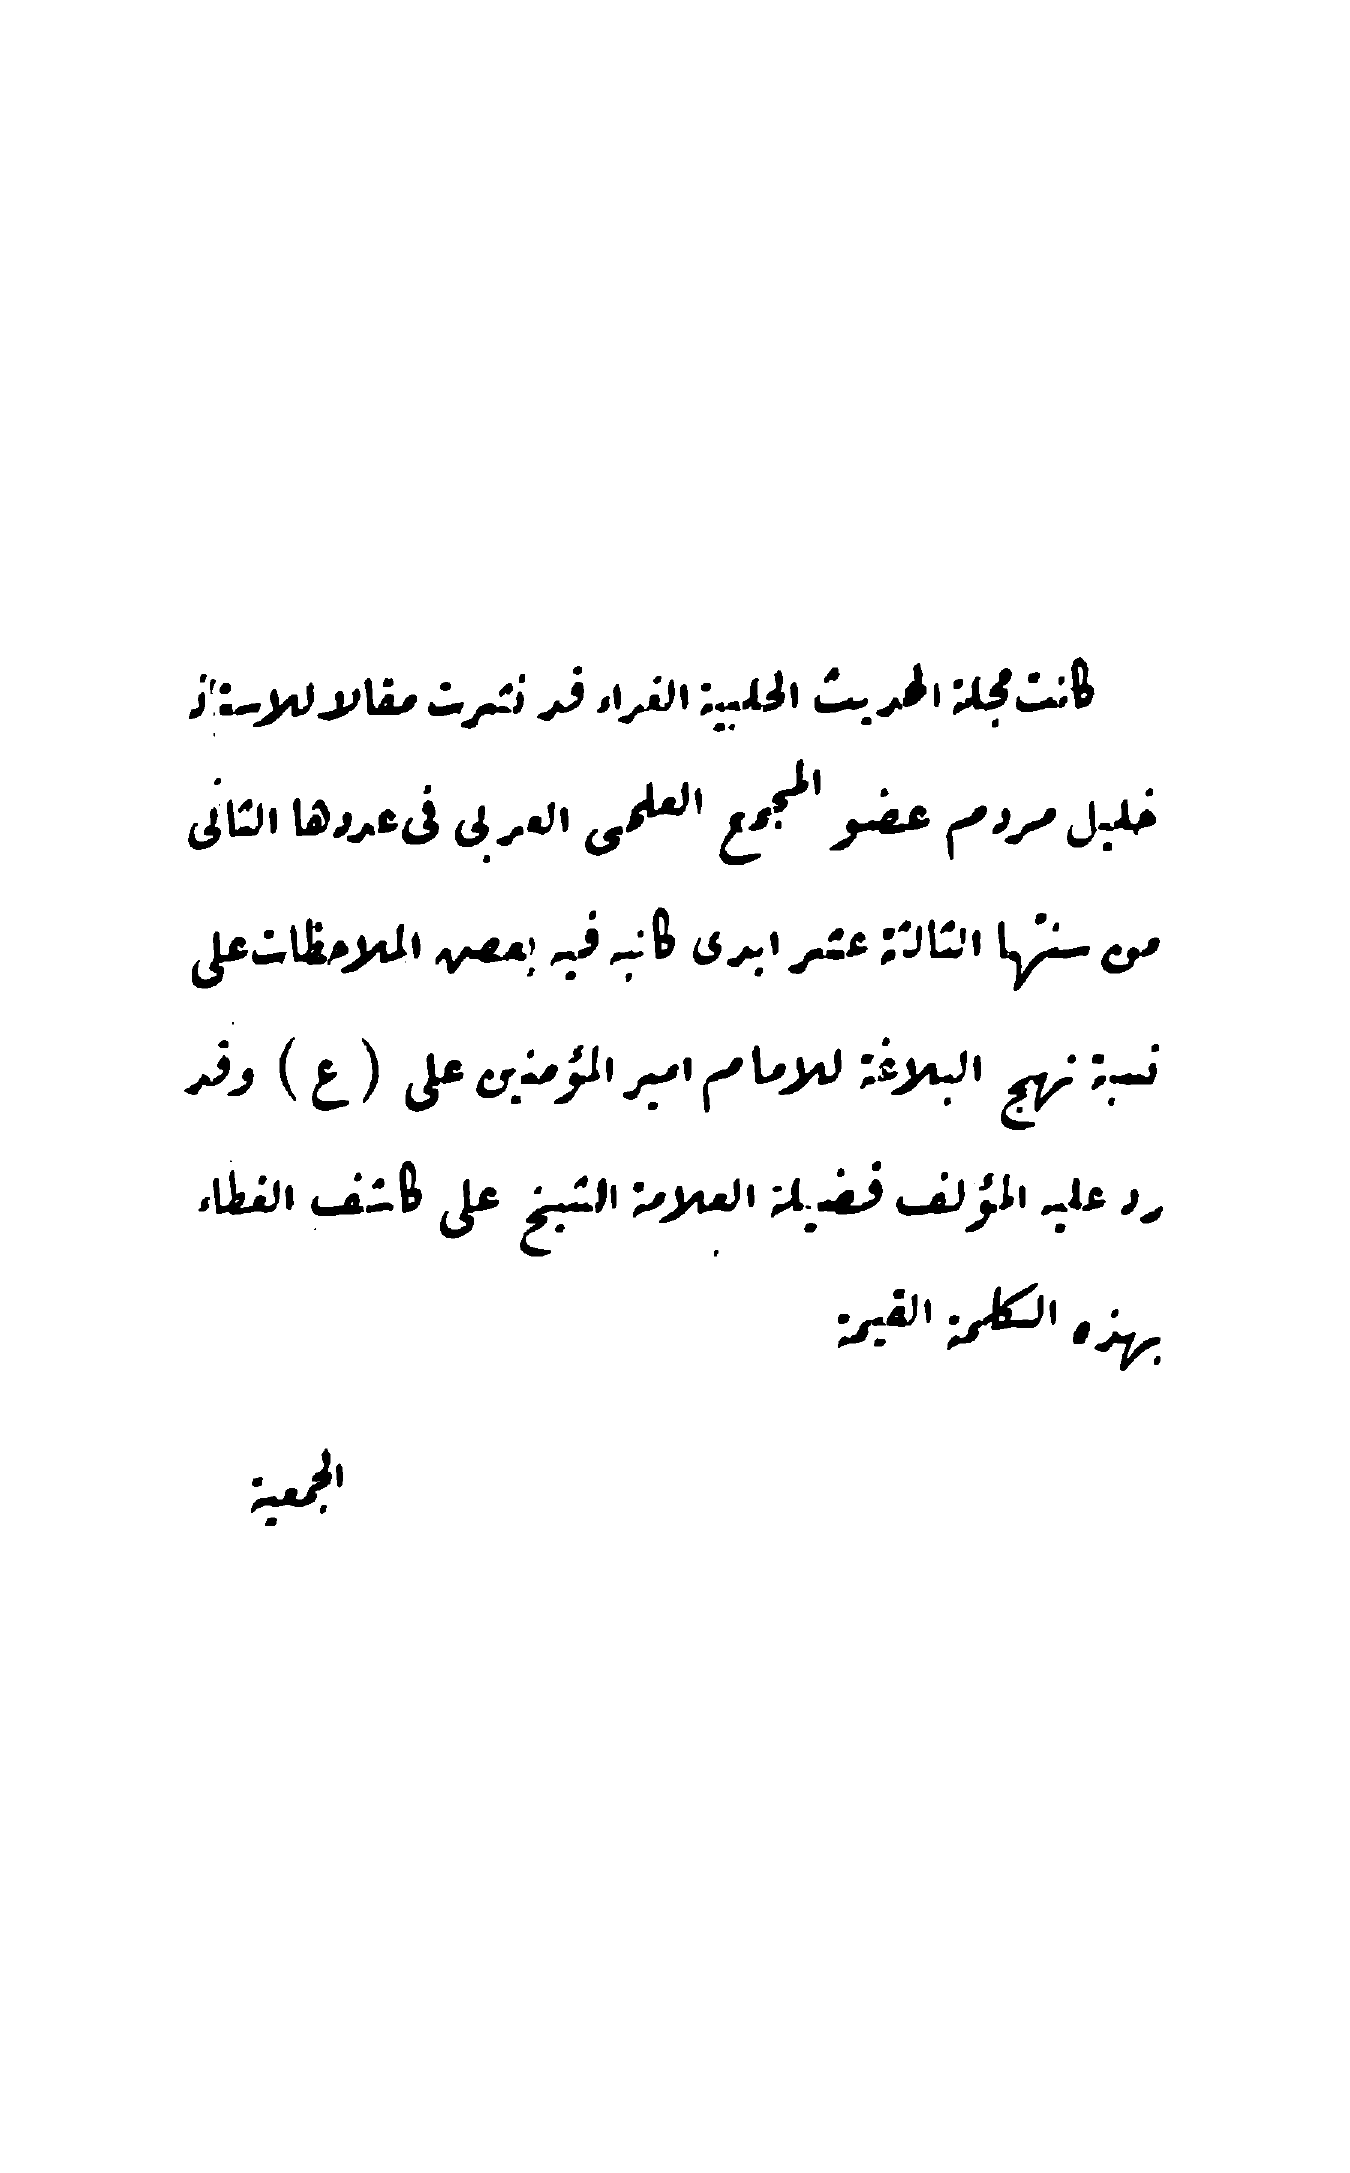 كانت مجلة الحديث الحلبية الغراء قد نشرت مقالا للاستاذ
خليل مردم عضو المجمع العلمى العربي فى عددها الثانى
من سنتها الثالثة عشر ابدى كاتبه فيه بعض الملاحظات على
نسبة نهج البلاغة للامام امير المؤمنين على ( ع ) وقد
رد عليه المؤلف فضيلة العلامة الشيخ على كاشف الغطاء
بهذه الكلمة القيمة
الجمعية